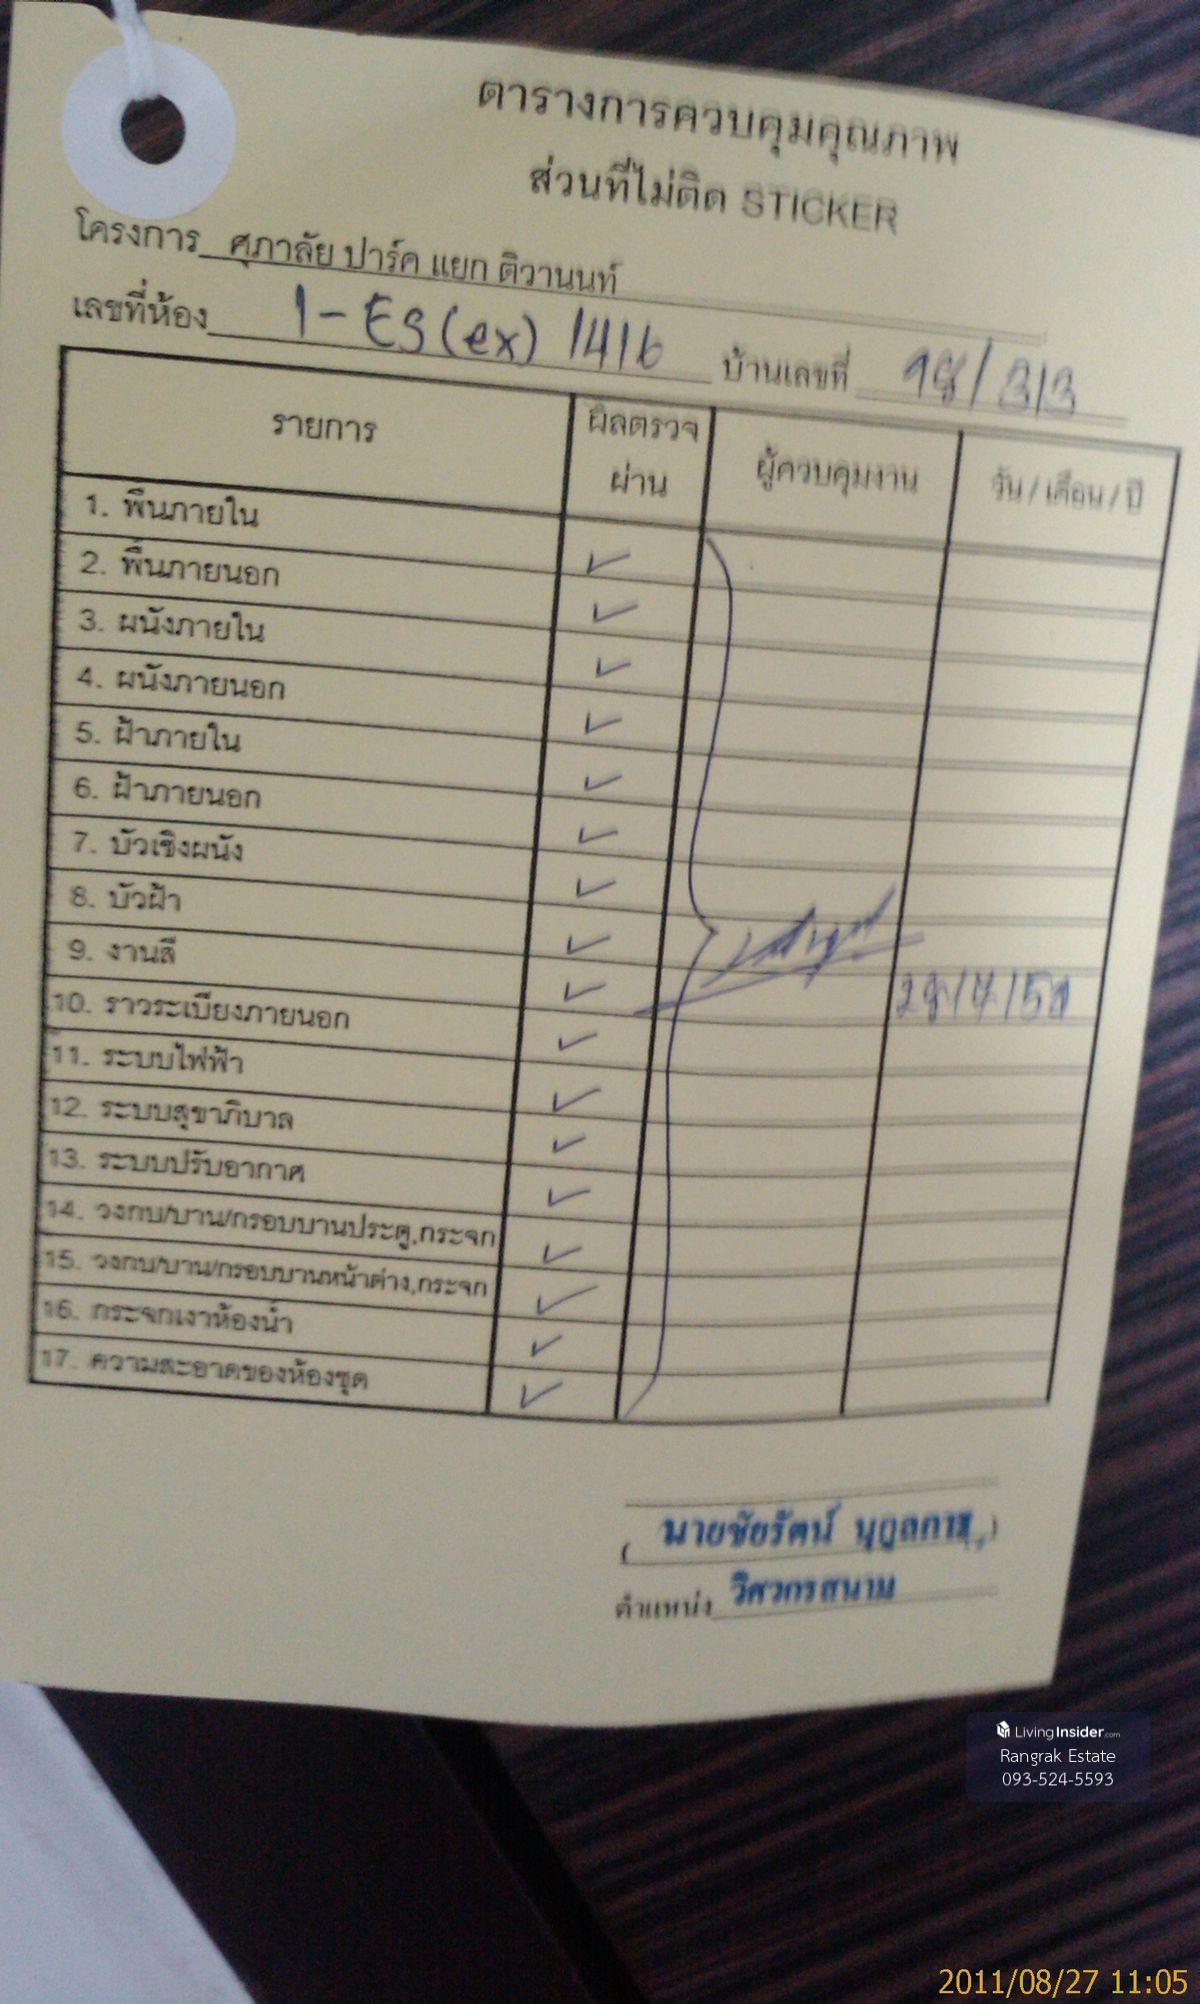 ตารางการควบคุมคุณภาพ
ส่วนที่ไม่ติด STICKER
โครงการ ศุภาลัย ปาร์ค แยก ติวานนท์
เลขที่ห้อง 1-ES(ex) 1416 บ้านเลขที่ 98/313
รายการ ผลตรวจ ผ่าน ผู้ควบคุมงาน วัน / เดือน / ปี
1. พื้นภายใน
2. พื้นภายนอก ✓
3. ผนังภายใน ✓
4. ผนังภายนอก ✓
5. ฝ้าภายใน ✓
6. ฝ้าภายนอก ✓
7. บัวเชิงผนัง ✓
8. บัวฝ้า ✓
9. งานสี ✓
10. ราวระเบียงภายนอก ✓
11. ระบบไฟฟ้า ✓
12. ระบบสุขาภิบาล ✓
13. ระบบปรับอากาศ ✓
14. วงกบ/บาน/กรอบบานประตู,กระจก ✓
15. วงกบ/บาน/กรอบบานหน้าต่าง,กระจก ✓
16. กระจกเงาห้องน้ำ ✓
17. ความสะอาดของห้องชุด ✓
(นายชัยรัตน์)
ตำแหน่ง วิศวกรสนาม
LivingInsider.com
Rangrak Estate
093-524-5593
2011/08/27 11:05